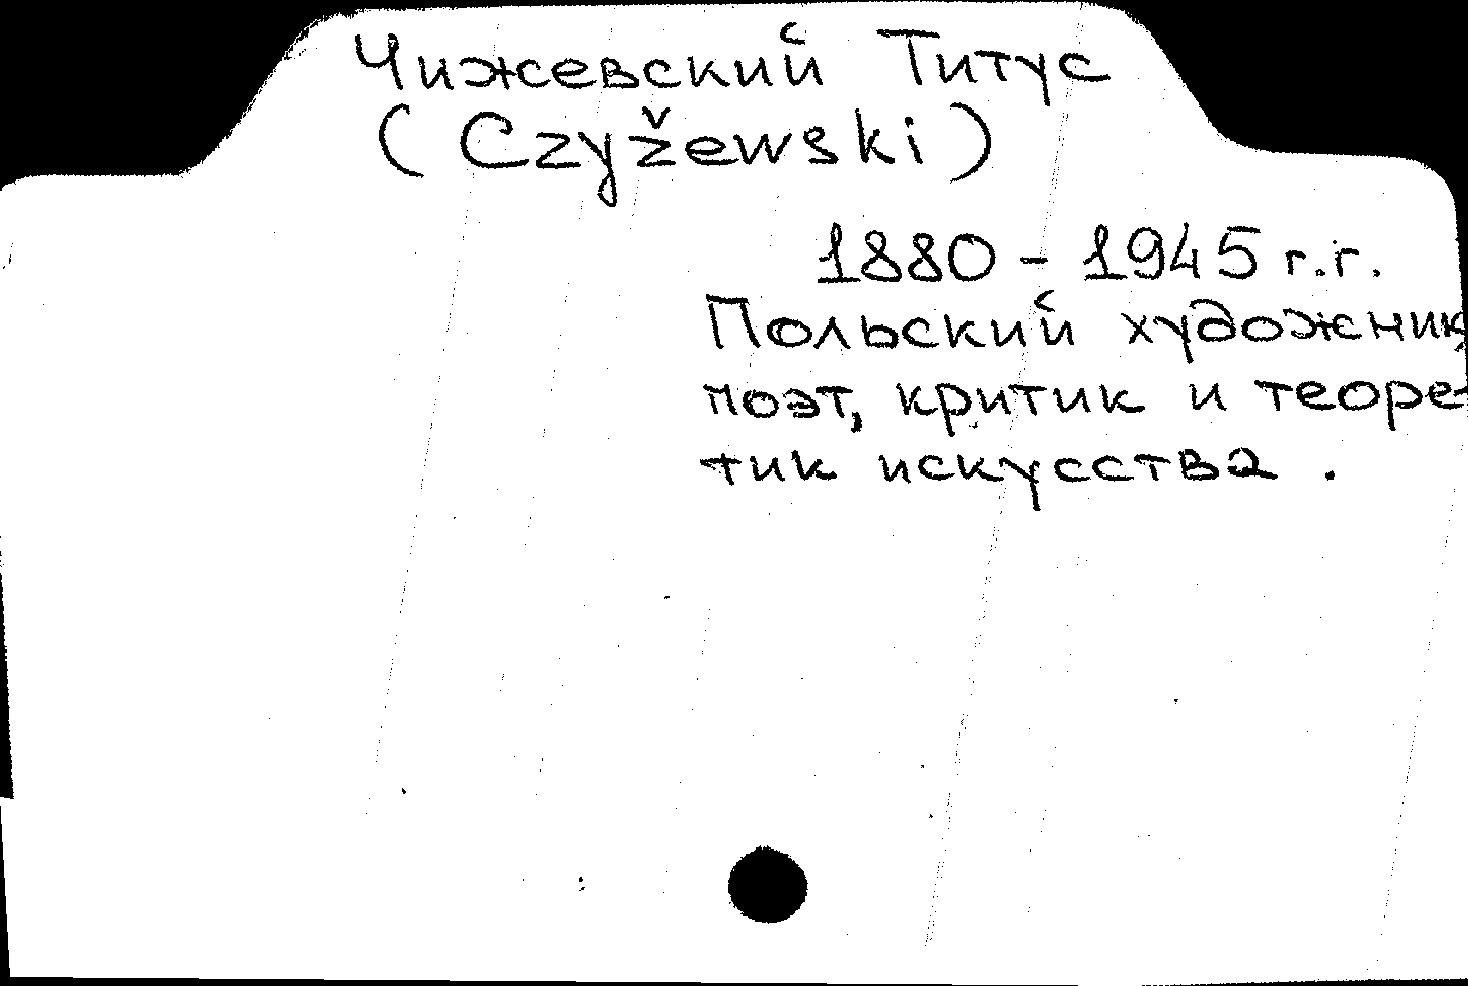 Чижевский Титус
(Czyževski)
1880 - 1945 г.г.
Польский художник,
поэт, критик и теоре-
тик искусства.